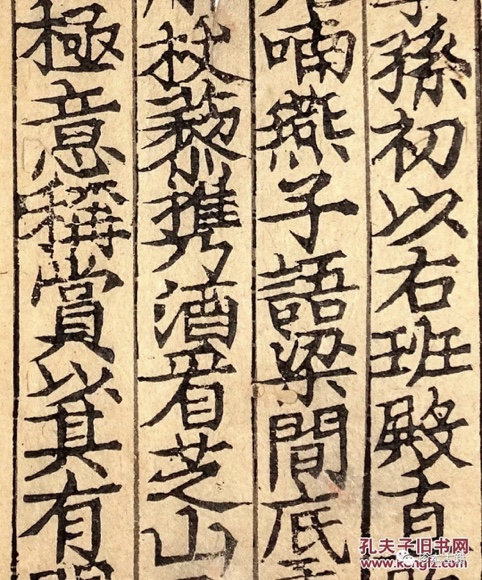 孫初以右班殿直
喃燕子語梁間底
杖藜攜酒看芝山
極意稱賞以其有
孔夫子旧书网
www.kongfz.com